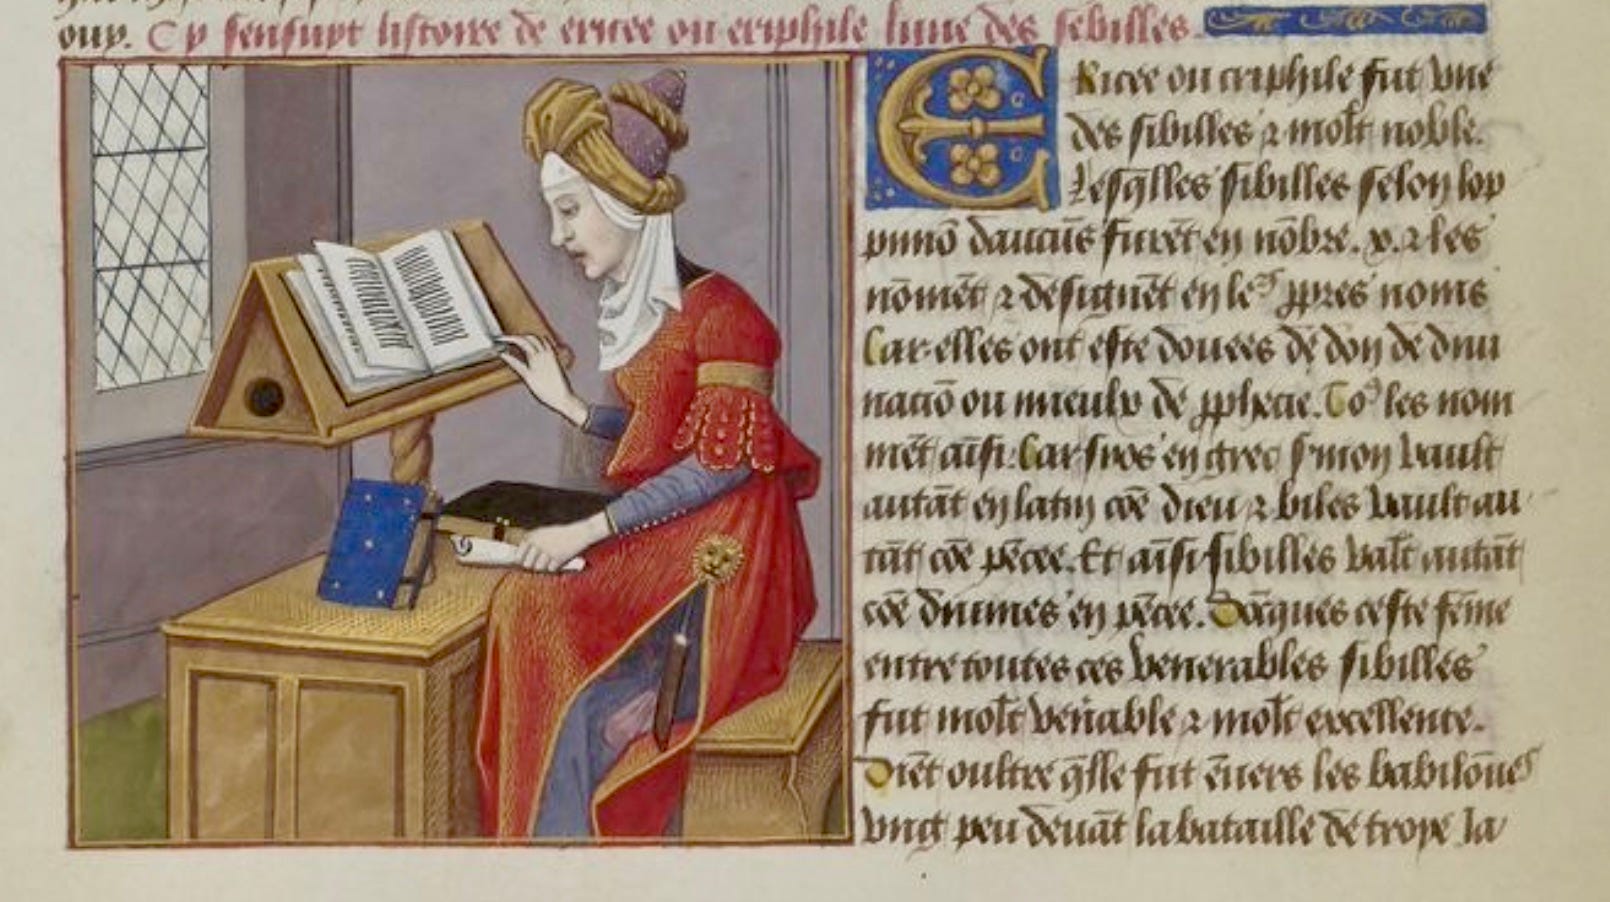 ouy. Cy sensuyt listoire de ericee ou eriphile lune des sebilles.
Ericee ou eriphile fut une
des sibilles ⁊ molt noble.
Lesqlles sibilles selon lop
pinio daucus furēt en nōbre .x. ⁊ les
nōmēt ⁊ designēt en leꝰ ꝓpres noms
Car elles ont este douees de don de diui
nacio ou mieulx de ꝓphecie. To⁹ les nom
mēt ainsi. Car syos en grec vault
autāt en latin cōe dieu ⁊ biles vault au
tāt cōe pēcee. Et aīsi sibilles valt autāt
cōe diuines en pēcee. Dōcques ceste fēme
entre toutes ces venerables sibilles
fut molt venable ⁊ molt excellente.
Diēt oultre qlle fut ēuers les babilōnes
ung peu deuāt la bataille de troye la